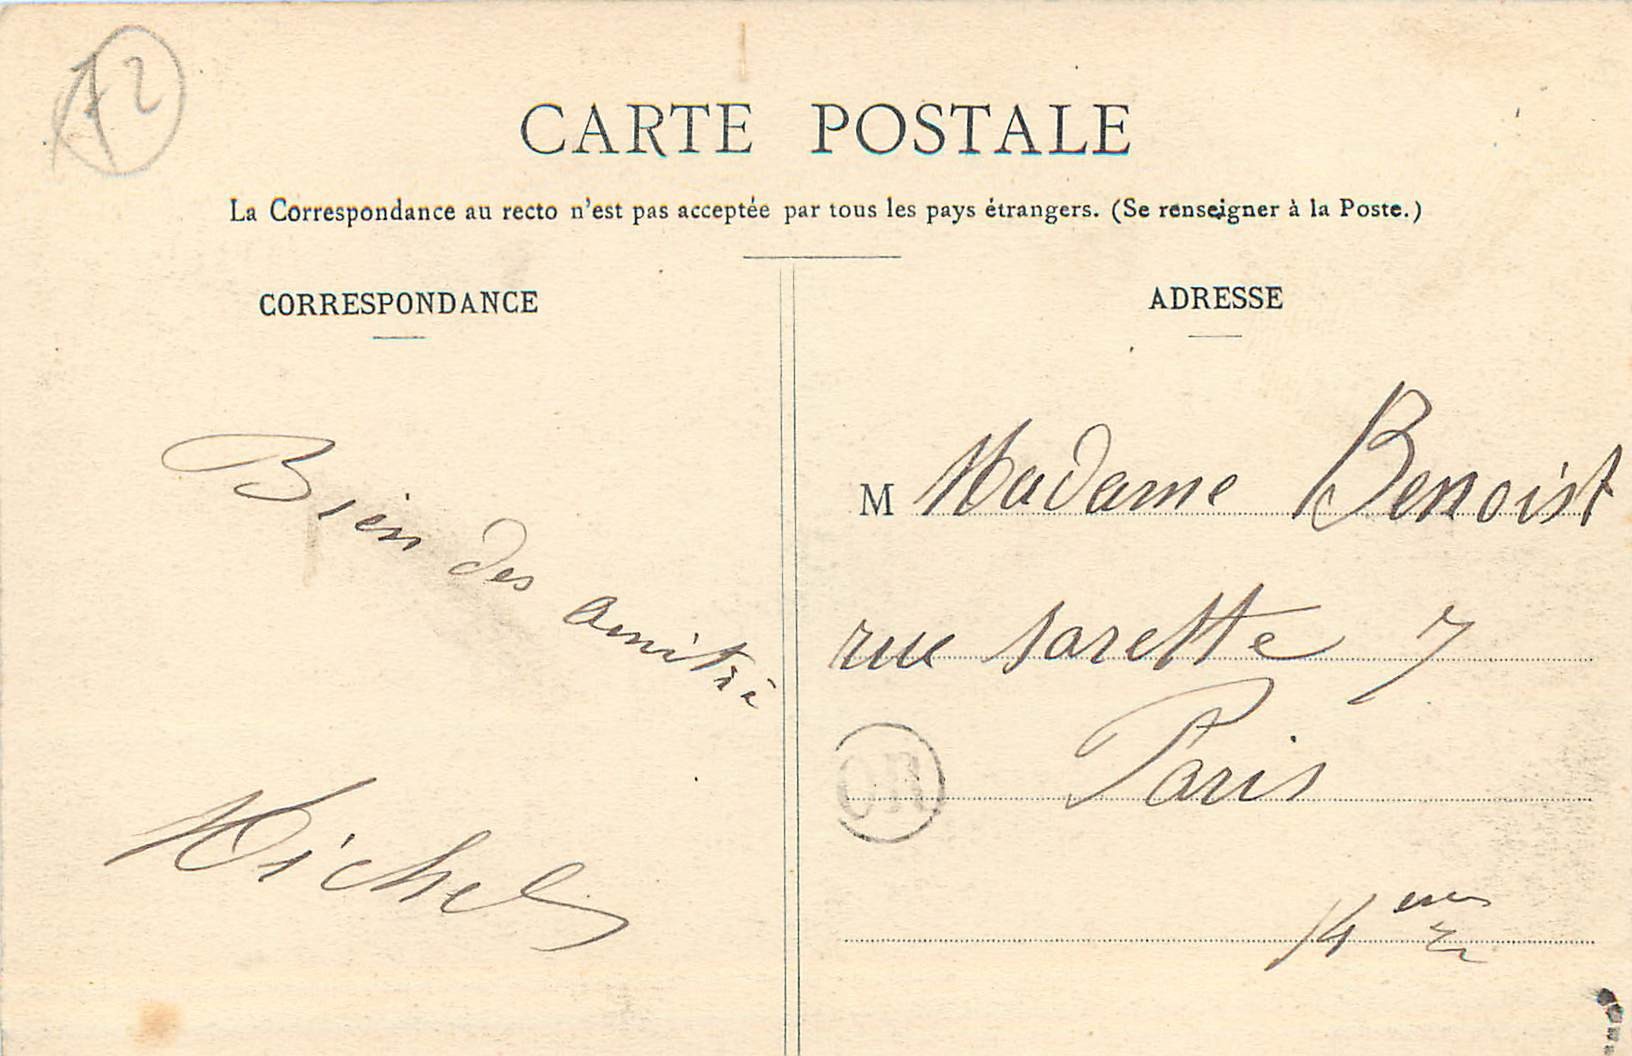 72
CARTE POSTALE
La Correspondance au recto n'est pas acceptée par tous les pays étrangers. (Se renseigner à la Poste.)
CORRESPONDANCE
Bien des amitié
Michel
ADRESSE
M Madame Benoist
rue sarette 7
Paris
OR
14